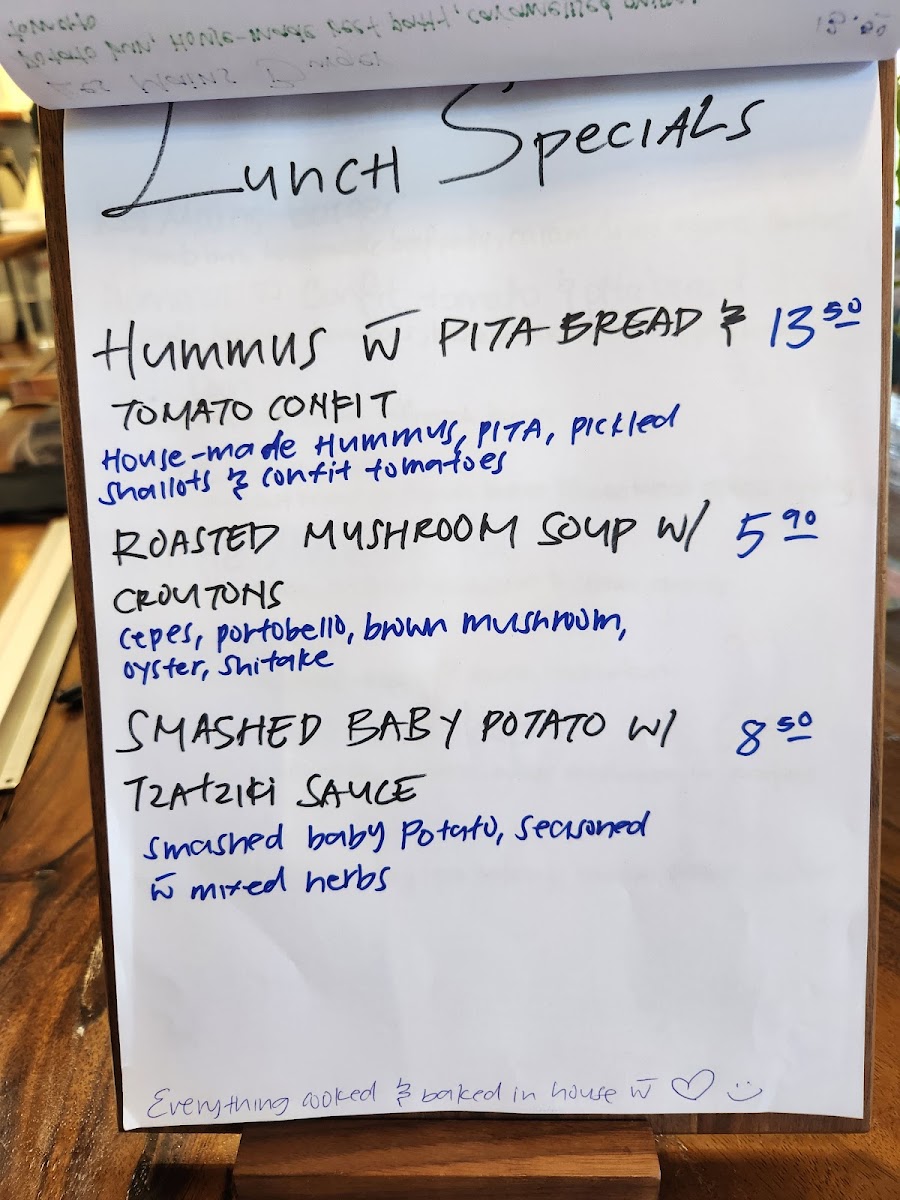 Lunch Specials
Hummus w̄ Pita Bread & 13 50
Tomato Confit
House-made Hummus, Pita, pickled
shallots & confit tomatoes
Roasted Mushroom Soup w/ 5 90
Croutons
cepes, portobello, brown mushroom,
oyster, shitake
Smashed Baby Potato w/ 8 50
Tzatziki Sauce
smashed baby potato, seasoned
w̄ mixed herbs
Everything cooked & baked in house w̄ ♡ :)